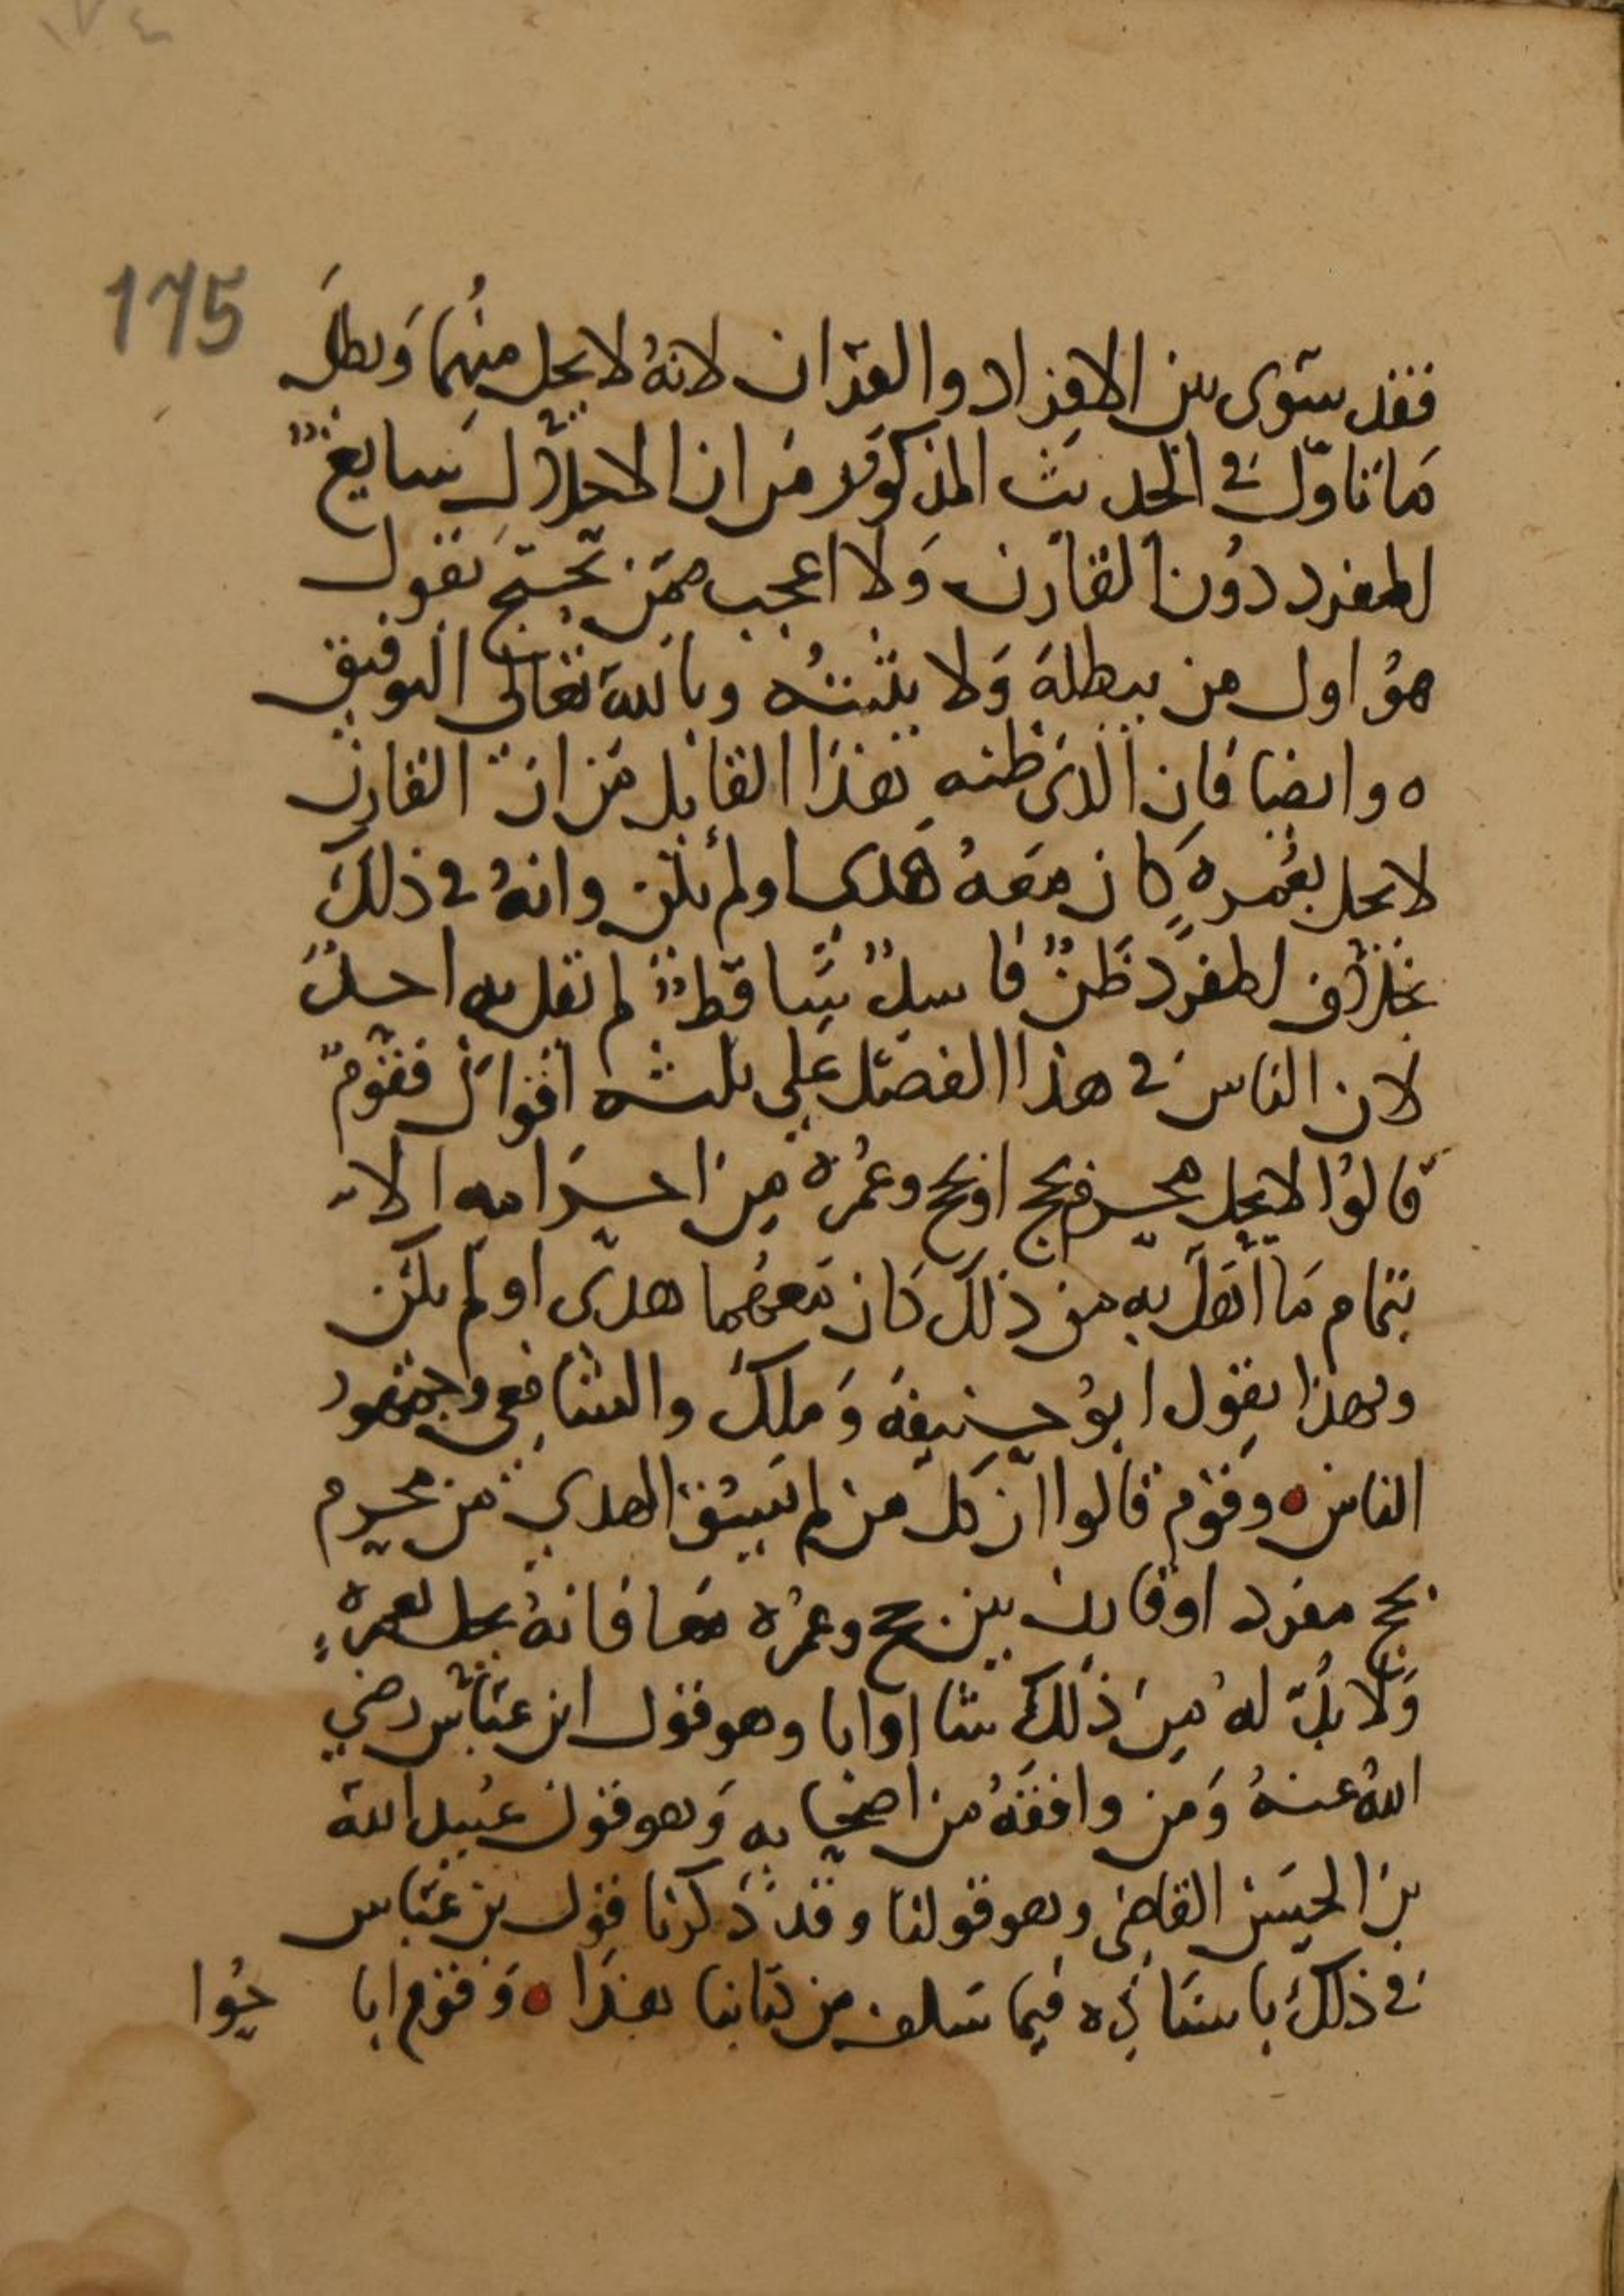 ١٧٤
175
فقد سَوى بين الافراد والقران لانهُ لا يحل منهُما وَبطلَ
مَا تَاوّل في الحديث المذكور مَن ان الاحلال سَايغٌ
للمفرد دوُن القارن وَلا اعجب ممّن يحتجّ بقول
هوُ اول من يبطلهَ وَلا يثبتهُ وبالله تعَالى التوفيق
ه وايضا فان الذي ظنه هذا القايل مَن انّ القارن
لا يحل بعُمرهٍ كان مَعهُ هَدي او لم يكن وانهُ في ذلكَ
بخلاف المفرَد ظَنٌ فاسدٌ سَاقطٌ لم يقل به احدٌ
لان الناس في هذا الفصل عَلى ثلثه اقوال فقومٌ
قالوُا لا يحل محرم بحج او بحج وعُمره مِن احرَامه الا
بتمام مَا اهَلّ به من ذلكَ كان مَعهُما هدى او لم يكن
وبهذا يقول ابوُ حنيفهَ وَملكَ والشافعي وجمهور
الناس ه وقوم قالوا ان كل من لم يَسُق الهدي من محرم
بحج مفرد او قارن بين حج وعمُره معَا فانهُ يحل بعمرهٍ
وَلا بُدّ لهُ مِن ذَلكَ شا او ابا وهو قول ابن عبَاس رضي
اللهُ عنهُ وَمن وافقهُ من اصحابه وَهو قول عُبيد الله
بن الحسَن القاضى وهو قولنا وقد ذكرنا قول بن عبَاس
في ذلكَ باسنَاده فيما سَلف من كتابنا هذَا ه وَقوم ابا حُوا